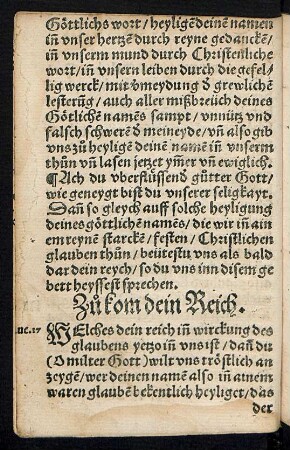 Göttlichs wort / heyligē deinē namen
in vnser hertzē durch reyne gedanckē /
in vnserm mund durch Christenliche
wort / in vnsern leiben durch die gefel-
lig werck / mit v̄meydung d̄ grewlichē
lesterūg / auch aller mißbreüch deines
Götlichē namēs sampt / vnnütz vnd
falsch schwerē d̄ meineyde / vn̄ also gib
vns zů heyligē deinē namē in vnserm
thůn vn̄ lasen jetzet ym̄er vn̄ ewiglich.
¶ Ach du vberflüssend gütter Gott /
wie geneygt bist du vnserer seligkayt.
Dan̄ so gleych auff solche heyligung
deines göttlichē namēs / die wir in ain
em reynē starckē / festen / Christlichen
glauben thůn / beütestu vns als bald
dar dein reych / so du vns inn disem ge
bett heyssest sprechen.
Zů kom dein Reich.
uc. 17 WElches dein reich in wirckung des
glaubens yetzo in vns ist / dan̄ du
(O milter Gott) wilt vns tröstlich an
zeygē / wer deinen namē also in ainem
waren glaubē bekentlich heyliget / das
der